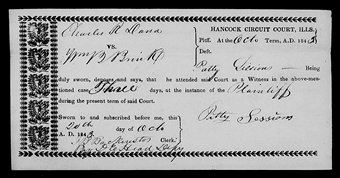 Charles R Dana
VS.
Wm B Brink
HANCOCK CIRCUIT COURT, ILLS.
Plff. At the Octo Term, A.D. 1843
Deft.
Patty Sessions Being
duly sworn, deposes and says, that he attended said Court as a Witness in the above-men-
tioned case, Three days, at the instance of the Plaintiff
during the present term of said Court.
Patty Sessions
Sworn to and subscribed before me, this
20th day of Octo
A. D. 1843.
Clerk.